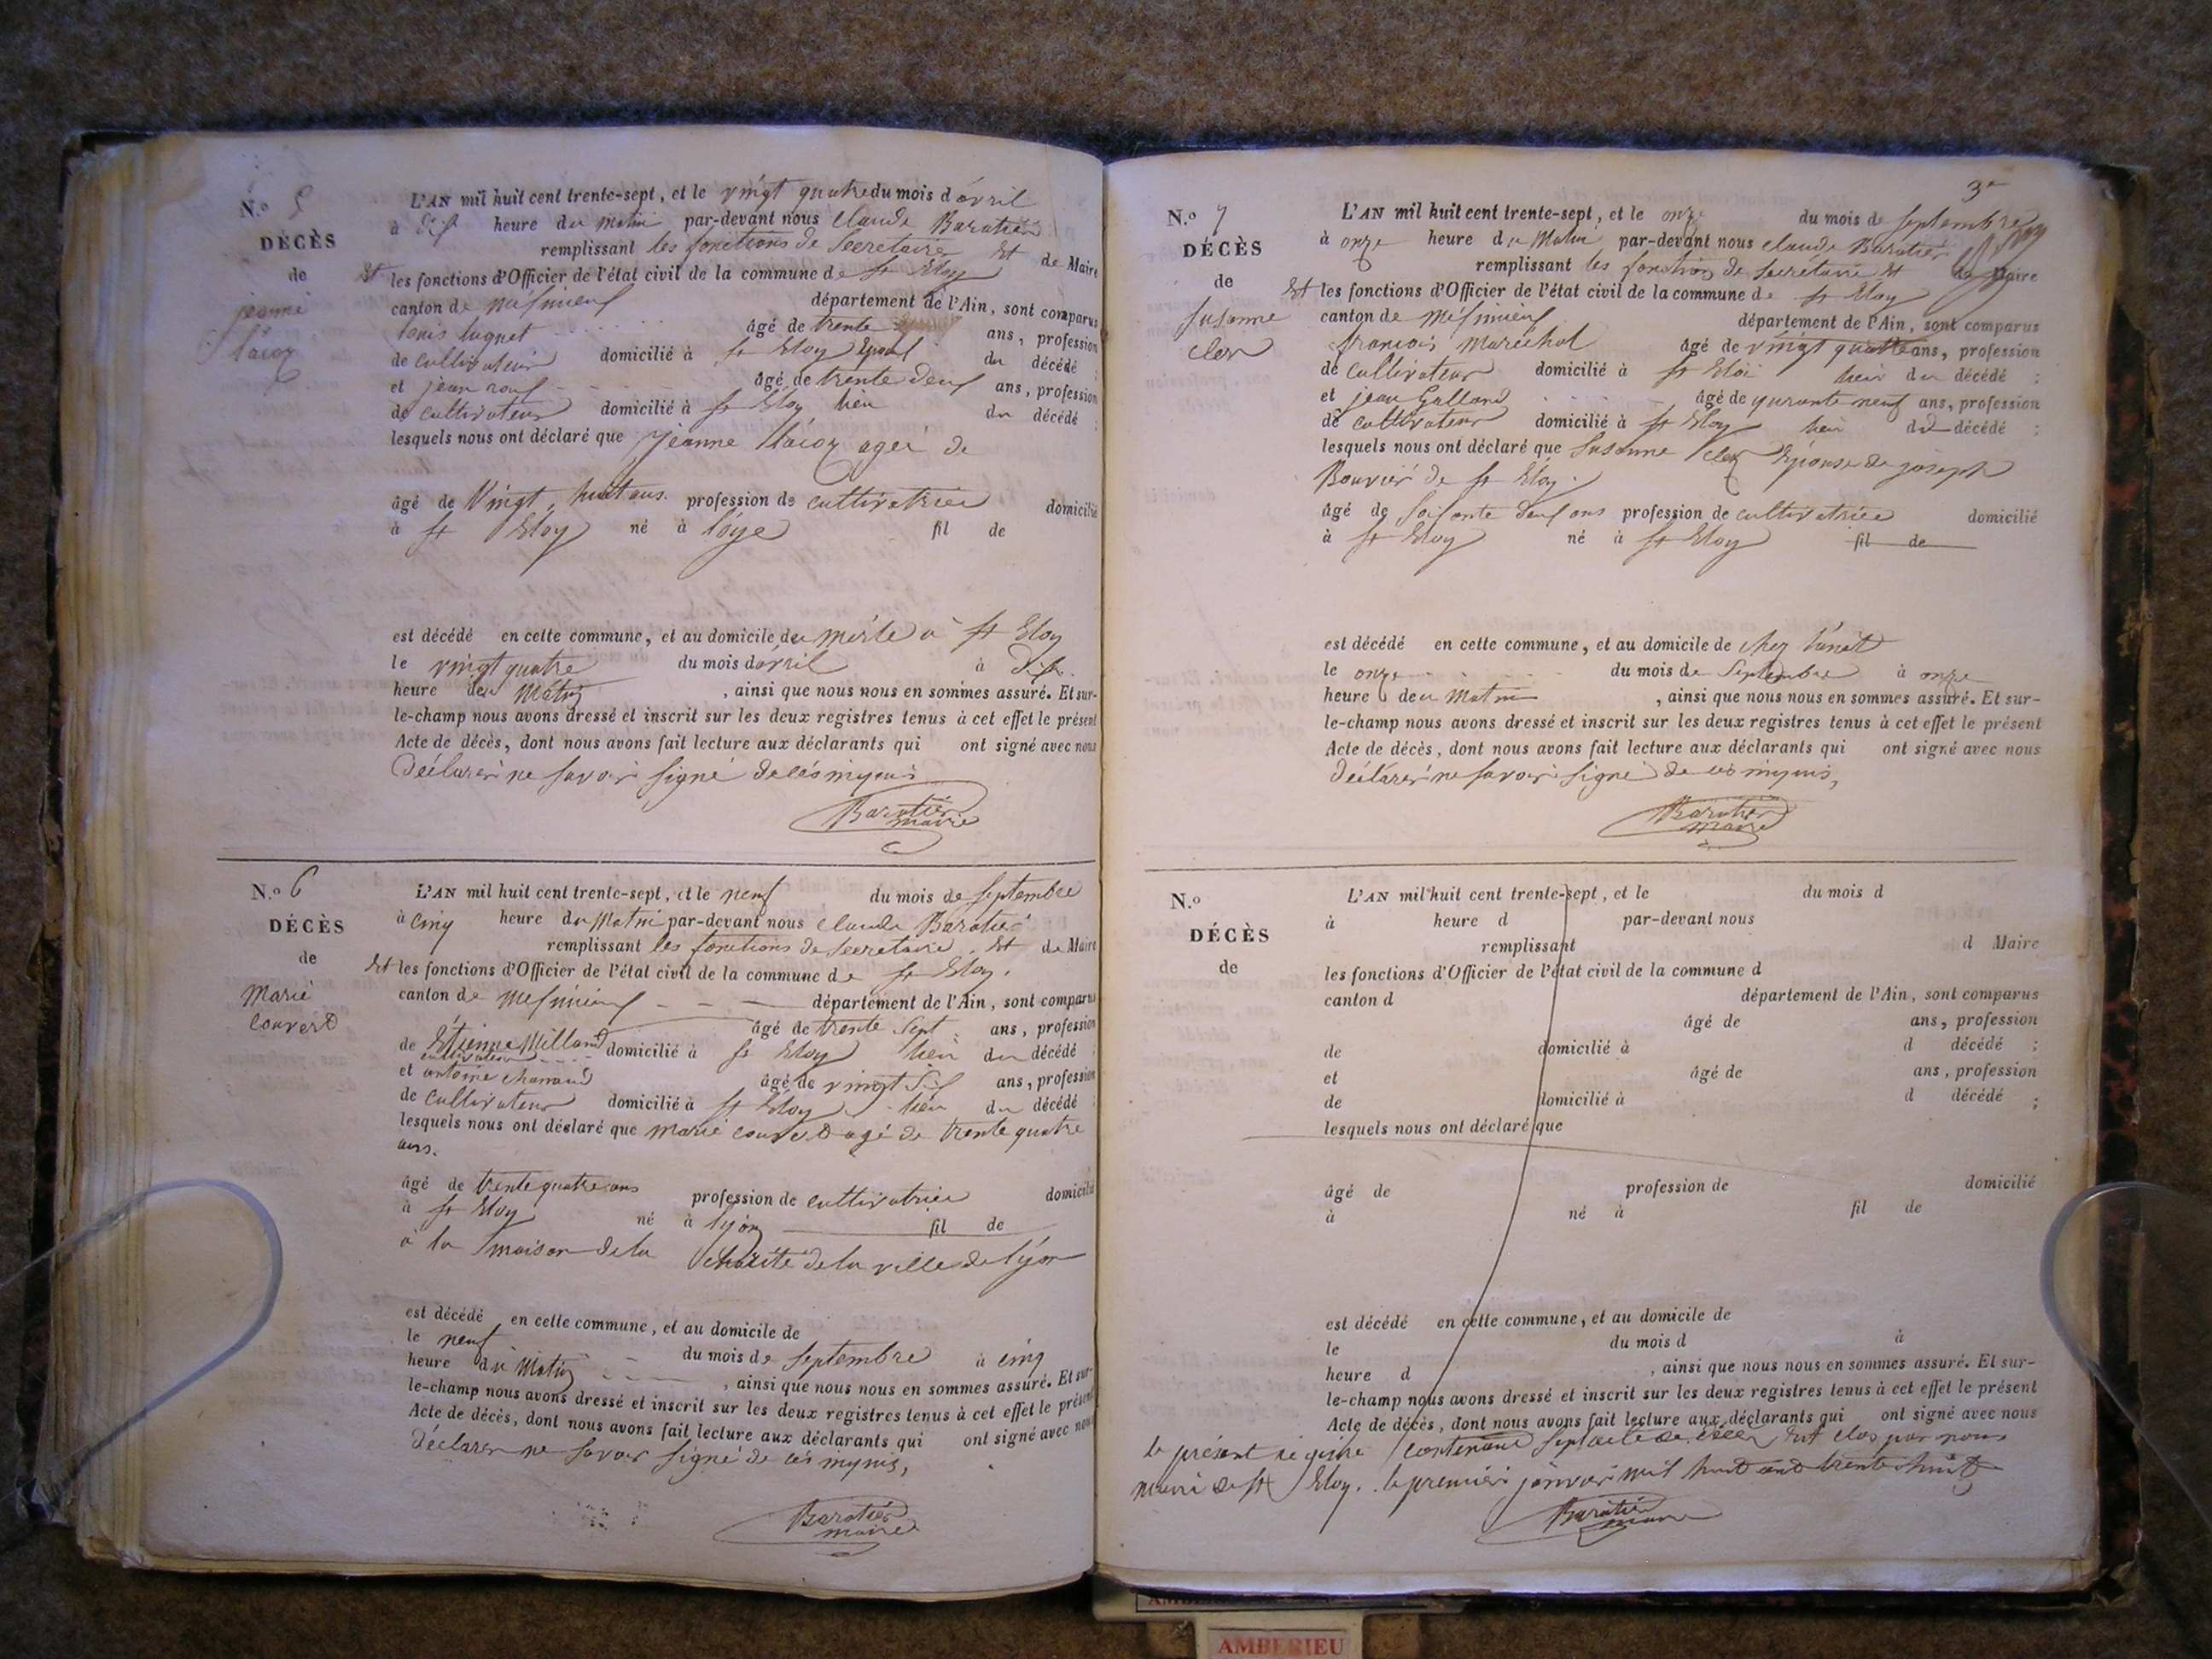 N.o 5
DÉCÈS
de
jeanne
lacoz
L'AN mil huit cent trente-sept, et le vingt quatre du mois d'avril
à dix heure du matin par-devant nous claude Baratier
remplissant les fonctions de secretaire et de Maire
et les fonctions d'Officier de l'état civil de la commune de st Eloy
canton de meximieux département de l'Ain, sont comparus
louis luquet âgé de trente ans, profession
de cultivateur domicilié à st Eloy Epoux du décédé ;
et jean roux âgé de trente deux ans, profession
de cultivateur domicilié à st Eloy du décédé ;
lesquels nous ont déclaré que jeanne lacoz ageé de
âgé de Vingt huit ans profession de cultivatrice domicilié
à st Eloy né à loye fil de
est décédé en cette commune, et au domicile du merle a st Eloy
le vingt quatre du mois d'avril à dix
heure du matin , ainsi que nous nous en sommes assuré. Et sur-
le-champ nous avons dressé et inscrit sur les deux registres tenus à cet effet le présent
Acte de décès, dont nous avons fait lecture aux déclarants qui ont signé avec nous
déclarer ne savoir signé de ces
Baratier
maire
N.o 6
DÉCÈS
de
Marie
Convert
L'AN mil huit cent trente-sept, et le neuf du mois de septembre
à cinq heure du Matin par-devant nous claude Baratier
remplissant les fonctions de secretaire et de Maire
Et les fonctions d'Officier de l'état civil de la commune de st Eloy.
canton de meximieux département de l'Ain, sont comparus
âgé de trente sept ans, profession
de Étienne Milland domicilié à st Eloy du décédé ;
cultivateur
et antoine âgé de vingt six ans, profession
de cultivateur domicilié à st Eloy du décédé ;
lesquels nous ont déclaré que marie convert agé de trente quatre
ans.
âgé de trente quatre ans profession de cultivatrice domicilié
à st Eloy né à lyon fil de
à la maison de la charité de la ville de lyon
est décédé en cette commune, et au domicile de
le neuf du mois de septembre à cinq
heure du Matin , ainsi que nous nous en sommes assuré. Et sur-
le-champ nous avons dressé et inscrit sur les deux registres tenus à cet effet le présent
Acte de décès, dont nous avons fait lecture aux déclarants qui ont signé avec nous
déclarer ne savoir signé de ces
Baratier
maire
3e
N.o 7
DÉCÈS
de
Susanne
cler
L'AN mil huit cent trente-sept, et le onze du mois de septembre
à onze heure du Matin par-devant nous claude Baratier
remplissant les fonctions de secrétaire et de Maire
Et les fonctions d'Officier de l'état civil de la commune de st Eloy
canton de Meximieux département de l'Ain, sont comparus
francois maréchal âgé de vingt quatre ans, profession
de cultivateur domicilié à st Eloi du décédé ;
et jean Galland âgé de quarante neuf ans, profession
de cultivateur domicilié à st Eloy du décédé ;
lesquels nous ont déclaré que Susanne cler Epouse de joseph
Bouvier de st Eloy.
âgé de soixante deux ans profession de cultivatrice domicilié
à st Eloy né à st Eloy fil de
est décédé en cette commune, et au domicile de chez
le onze du mois de Septembre à onze
heure du Matin , ainsi que nous nous en sommes assuré. Et sur-
le-champ nous avons dressé et inscrit sur les deux registres tenus à cet effet le présent
Acte de décès, dont nous avons fait lecture aux déclarants qui ont signé avec nous
déclarer ne savoir signé de ces
Baratier
maire
N.o
DÉCÈS
de
L'AN mil huit cent trente-sept, et le du mois d
à heure d par-devant nous
remplissant d Maire
les fonctions d'Officier de l'état civil de la commune d
canton d département de l'Ain, sont comparus
âgé de ans, profession
de domicilié à d décédé ;
et âgé de ans, profession
de domicilié à d décédé ;
lesquels nous ont déclaré que
âgé de profession de domicilié
à né à fil de
est décédé en cette commune, et au domicile de
le du mois d à
heure d , ainsi que nous nous en sommes assuré. Et sur-
le-champ nous avons dressé et inscrit sur les deux registres tenus à cet effet le présent
Acte de décès, dont nous avons fait lecture aux déclarants qui ont signé avec nous
le présent registre contenant sept acte de décès est clos par nous
maire de st Eloy. le premier janvier mil huit cent trente huit
Baratier
maire
AMBERIEU